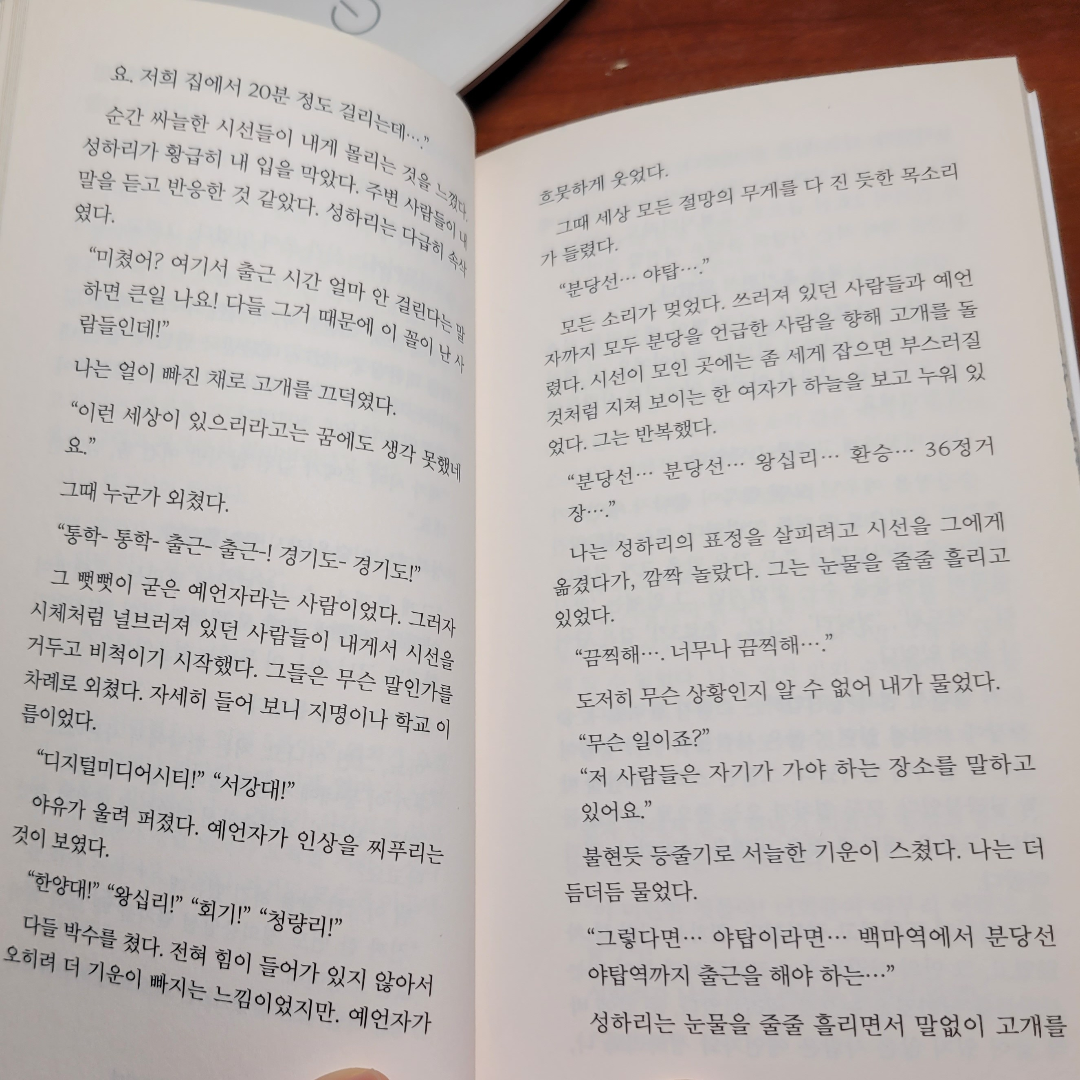 요. 저희 집에서 20분 정도 걸리는데…."
순간 싸늘한 시선들이 내게 몰리는 것을 느꼈다.
성하리가 황급히 내 입을 막았다. 주변 사람들이 내
말을 듣고 반응한 것 같았다. 성하리는 다급히 속삭
였다.
“미쳤어? 여기서 출근 시간 얼마 안 걸린다는 말
하면 큰일 나요! 다들 그거 때문에 이 꼴이 난 사
람들인데!”
나는 얼이 빠진 채로 고개를 끄덕였다.
“이런 세상이 있으리라고는 꿈에도 생각 못했네
요.”
그때 누군가 외쳤다.
“통학- 통학- 출근- 출근-! 경기도- 경기도!”
그 뻣뻣이 굳은 예언자라는 사람이었다. 그러자
시체처럼 널브러져 있던 사람들이 내게서 시선을
거두고 비척이기 시작했다. 그들은 무슨 말인가를
차례로 외쳤다. 자세히 들어 보니 지명이나 학교 이
름이었다.
“디지털미디어시티!” “서강대!”
야유가 울려 퍼졌다. 예언자가 인상을 찌푸리는
것이 보였다.
“한양대!” “왕십리!” “회기!” “청량리!”
다들 박수를 쳤다. 전혀 힘이 들어가 있지 않아서
오히려 더 기운이 빠지는 느낌이었지만. 예언자가
흐뭇하게 웃었다.
그때 세상 모든 절망의 무게를 다 진 듯한 목소리
가 들렸다.
“분당선… 야탑….”
모든 소리가 멎었다. 쓰러져 있던 사람들과 예언
자까지 모두 분당을 언급한 사람을 향해 고개를 돌
렸다. 시선이 모인 곳에는 좀 세게 잡으면 부스러질
것처럼 지쳐 보이는 한 여자가 하늘을 보고 누워 있
었다. 그는 반복했다.
“분당선… 분당선… 왕십리… 환승… 36정거
장….”
나는 성하리의 표정을 살피려고 시선을 그에게
옮겼다가, 깜짝 놀랐다. 그는 눈물을 줄줄 흘리고
있었다.
“끔찍해…. 너무나 끔찍해….”
도저히 무슨 상황인지 알 수 없어 내가 물었다.
“무슨 일이죠?”
“저 사람들은 자기가 가야 하는 장소를 말하고
있어요.”
불현듯 등줄기로 서늘한 기운이 스쳤다. 나는 더
듬더듬 물었다.
“그렇다면… 야탑이라면… 백마역에서 분당선
야탑역까지 출근을 해야 하는…”
성하리는 눈물을 줄줄 흘리면서 말없이 고개를